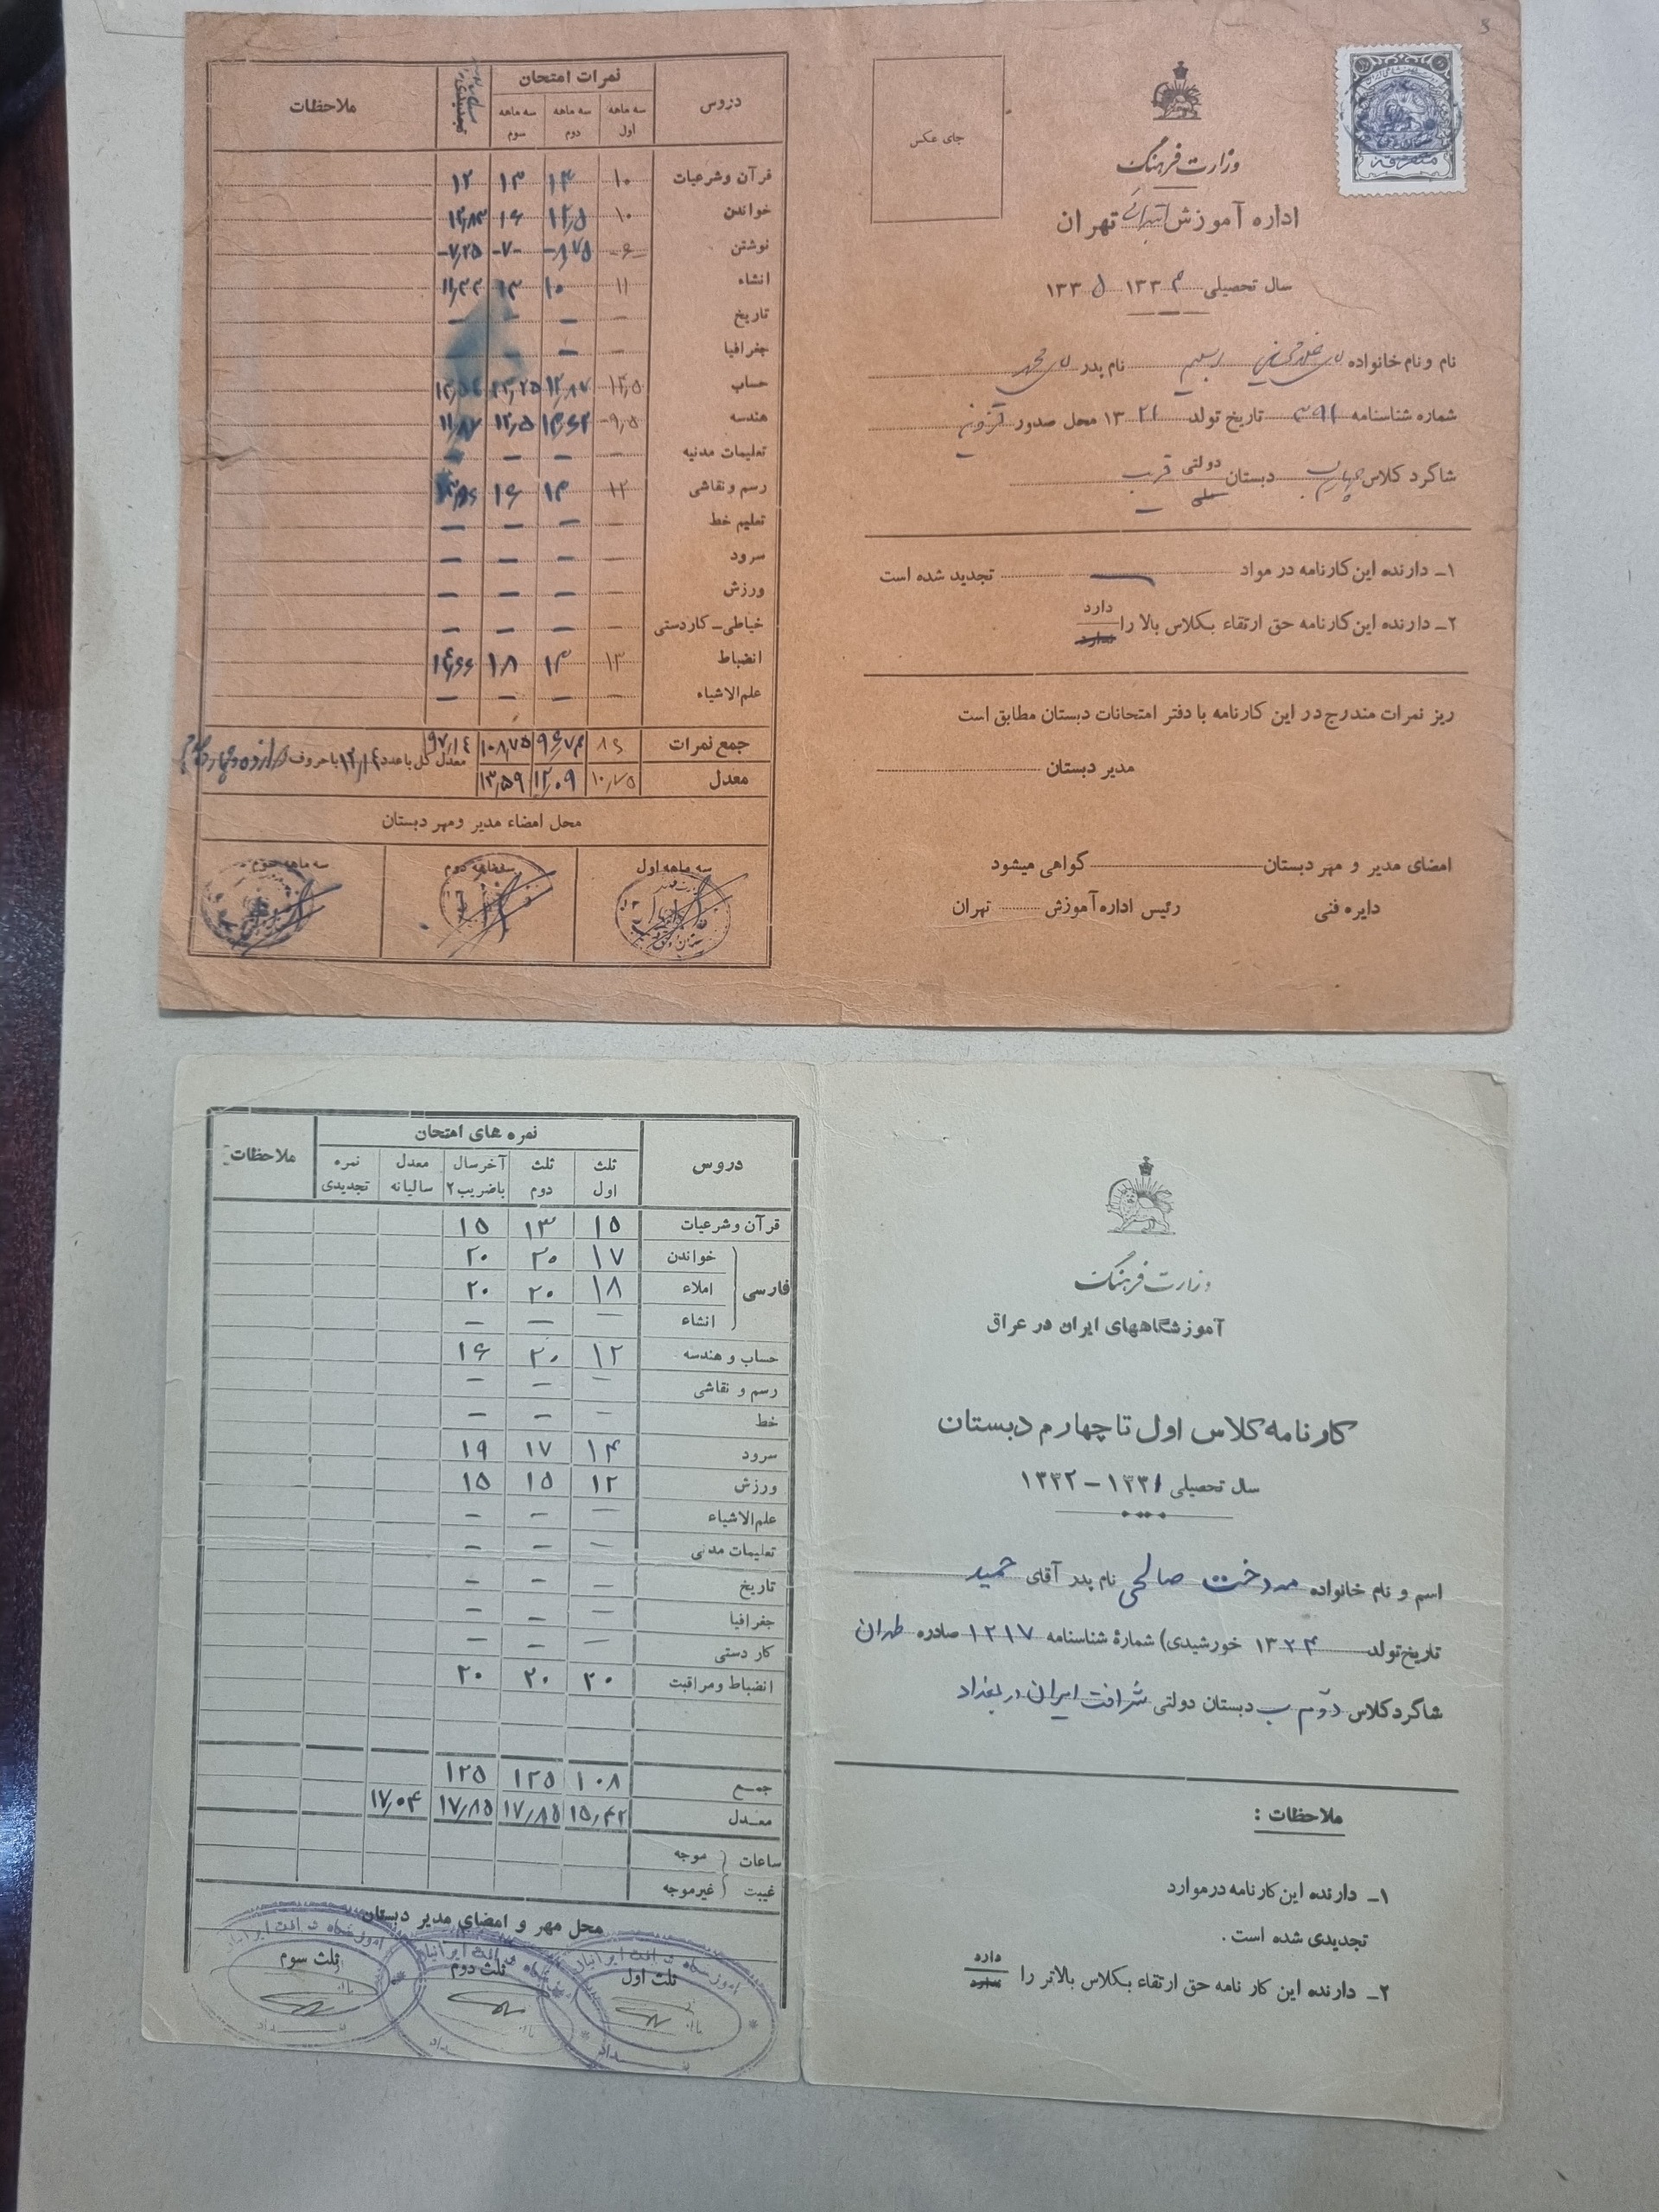 وزارت فرهنگ
اداره آموزش تهران
سال تحصیلی ۱۳۳۴ ۱۳۳۵
جای عکس
متفرقه
نام و نام خانواده نام پدر
شماره شناسنامه تاریخ تولد ۱۳۲۱ محل صدور قزوین
شاگرد کلاس چهارم دبستان دولتی ملی
۱ـ دارنده این کارنامه در مواد — تجدید شده است
۲ـ دارنده این کارنامه حق ارتقاء بکلاس بالا را دارد ندارد
ریز نمرات مندرج در این کارنامه با دفتر امتحانات دبستان مطابق است
مدیر دبستان
امضای مدیر و مهر دبستان گواهی میشود
دایره فنی رئیس اداره آموزش تهران
دروس نمرات امتحان تجدیدی ملاحظات
سه ماهه اول سه ماهه دوم سه ماهه سوم
قرآن و شرعیات ۱۰ ۱۴ ۱۳ ۱۲
خواندن ۱۰ ۱۲٫۵ ۱۶ ۱۲٫۸۳
نوشتن ۶ ۸٫۷۵ ۷ ۷٫۲۵
انشاء ۱۱ ۱۰ ۱۳ ۱۱٫۳۳
تاریخ — — —
جغرافیا — —
حساب ۱۲٫۵ ۱۲٫۸۷ ۱۲٫۲۵
هندسه ۹٫۵ ۱۳٫۶۲ ۱۲٫۵ ۱۱٫۸۷
تعلیمات مدنیه — — — —
رسم و نقاشی ۱۲ ۱۴ ۱۶
تعلیم خط — — — —
سرود — — — —
ورزش — — — —
خیاطی ـ کاردستی — — — —
انضباط ۱۳ ۱۴ ۱۸ ۱۴٫۶۶
علم‌الاشیاء — — — —
جمع نمرات ۸۶ ۹۶٫۷۴ ۱۰۸٫۷۵ ۹۷٫۱۴
معدل ۱۰٫۷۵ ۱۲٫۰۹ ۱۳٫۵۹ معدل کل باعدد ۱۲٫۱۴ باحروف
محل امضاء مدیر و مهر دبستان
سه ماهه اول سه ماهه دوم سه ماهه سوم
وزارت فرهنگ
آموزشگاههای ایران در عراق
کارنامه کلاس اول تا چهارم دبستان
سال تحصیلی ۱۳۳۱ – ۱۳۳۲
اسم و نام خانواده مهدخت صالحی نام پدر آقای حمید
تاریخ تولد ۱۳۲۴ خورشیدی) شمارهٔ شناسنامه ۱۲۱۷ صادره طهران
شاگرد کلاس دوم ب دبستان دولتی شرافت ایران در بغداد
ملاحظات :
۱ـ دارنده این کارنامه در موارد
تجدیدی شده است .
۲ـ دارنده این کار نامه حق ارتقاء بکلاس بالاتر را دارد ندارد
دروس نمره های امتحان ملاحظات
ثلث اول ثلث دوم آخر سال باضریب ۲ معدل سالیانه نمره تجدیدی
قرآن و شرعیات ۱۵ ۱۳ ۱۵
فارسی
خواندن ۱۷ ۲۰ ۲۰
املاء ۱۸ ۲۰ ۲۰
انشاء — — —
حساب و هندسه ۱۲ ۲۰ ۱۶
رسم و نقاشی — — —
خط — — —
سرود ۱۴ ۱۷ ۱۹
ورزش ۱۲ ۱۵ ۱۵
علم‌الاشیاء — — —
تعلیمات مدنی — — —
تاریخ — — —
جغرافیا — — —
کار دستی — — —
انضباط و مراقبت ۲۰ ۲۰ ۲۰
جمع ۱۰۸ ۱۲۵ ۱۲۵
معدل ۱۵٫۴۲ ۱۷٫۸۵ ۱۷٫۸۵ ۱۷٫۰۴
ساعات غیبت
موجه
غیرموجه
محل مهر و امضای مدیر دبستان
ثلث اول ثلث دوم ثلث سوم